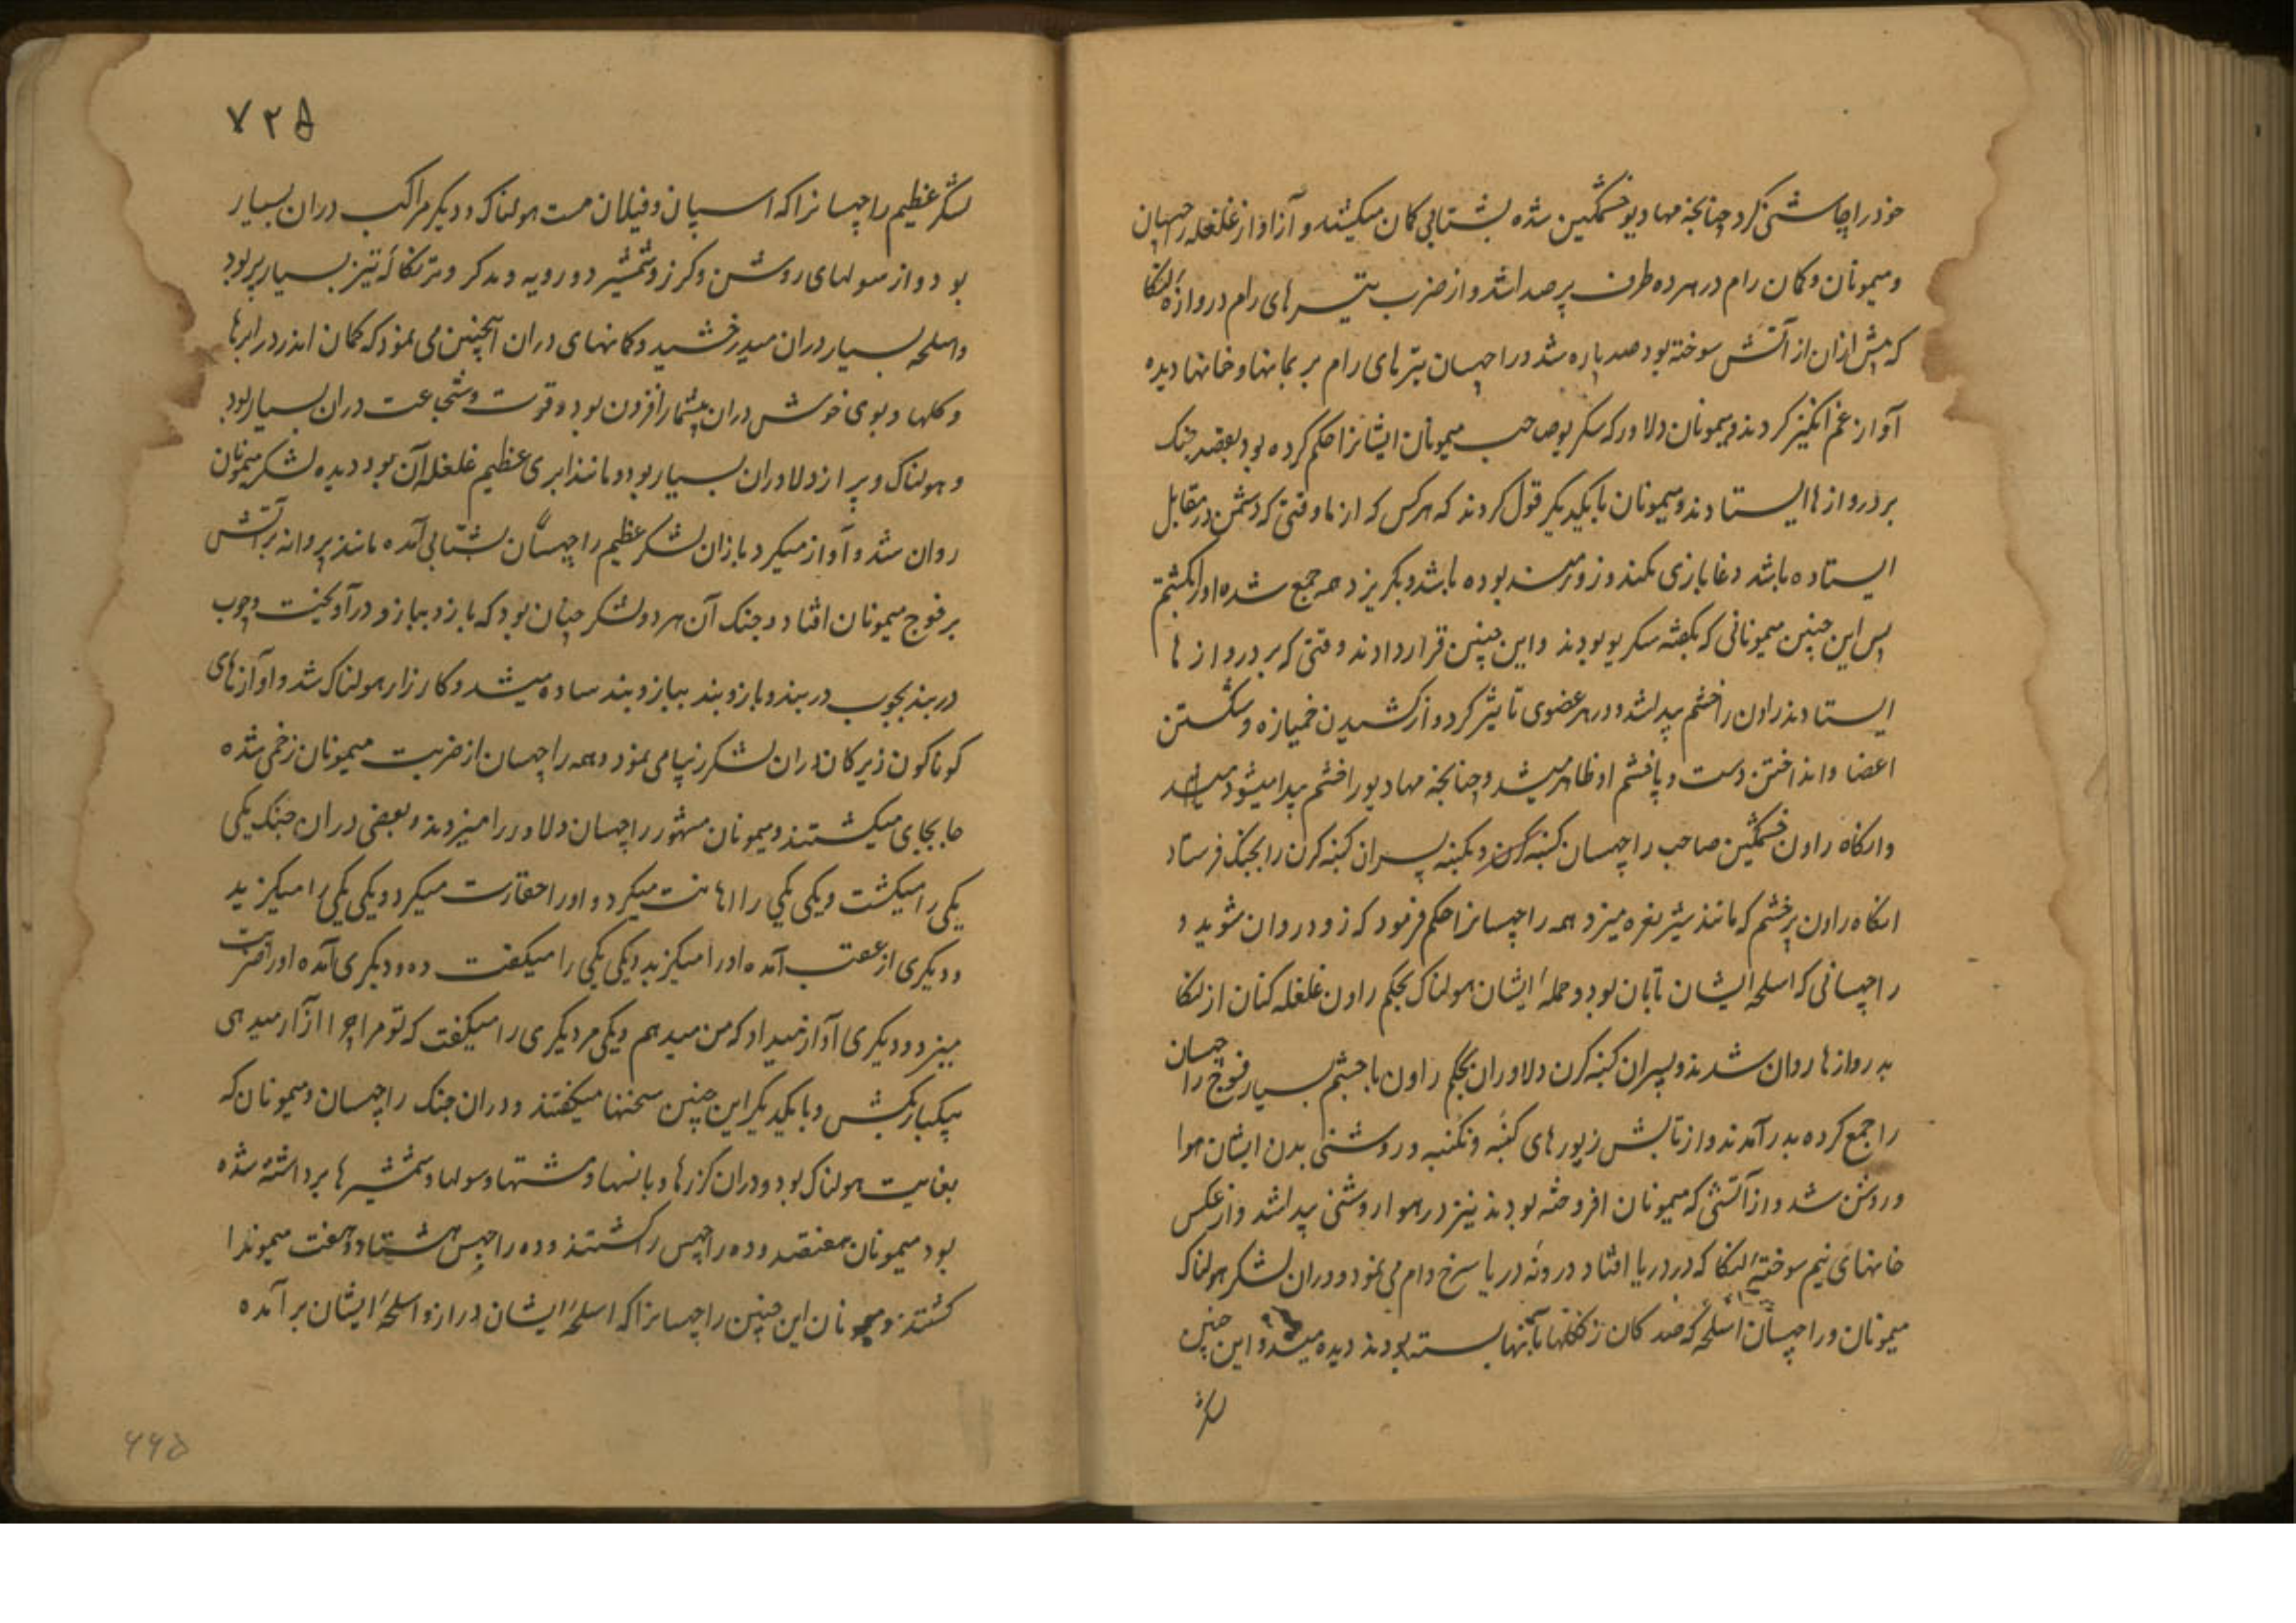 خود را چاشنی کرد چنانچه مهادیو خشمگین شده بشتابی کمان میکشد و آواز از غلغله راچهسان
و میمونان و کمان رام در هر ده طرف پر صدا شد و از ضرب تیرهای رام دروازهٔ لنکا
که پیش ازان از آتش سوخته بود صد پاره شد و راچهسان تیرهای رام بر بمانها و خانها دیده
آواز غم انگیز کردند و میمونان دلاور که سکریو صاحب میمونان ایشانرا حکم کرده بود بقصد جنک
بر دروازها ایستادند و میمونان با یکدیکر قول کردند که هر کس که از ما وقتی که دشمن در مقابل
ایستاده باشد دغا بازی بکند و زورمند بوده باشد و بکریزد همه جمع شده او را بکشیم
پس این چنین میمونانی که بکفته سکریو بودند و این چنین قرار دادند وقتی که بر دروازها
ایستادند راون را خشم پیدا شد و در هر عضوی تاثیر کرد و از کشیدن خمیازه و شکستن
اعضا و انداختن دست و پا خشم او ظاهر میشد و چنانچه مهادیو را خشم پیدا میشود میشد
وانکاه راون خشمگین صاحب راچهسان کنبه کرن و نکنبه پسران کنبه کرن را بجنک فرستاد
انکاه راون پر خشم که مانند شیر نعره میزد همه راچهسانرا حکم فرمود که زود روان شوید و
راچهسانی که اسلحه ایشان تابان بود و حملهٔ ایشان هولناک بحکم راون غلغله کنان از لنکا
بدروازها روان شدند و پسران کنبه کرن دلاوران بحکم راون با خشم بسیار فوج راچهسان
را جمع کرده بدر آمدند و از تابش زیورهای کنبه و نکنبه و روشنی بدن ایشان هوا
و روشن شد و از آتشی که میمونان افروخته بودند نیز در هوا روشنی پیدا شد و از عکس
خانهای نیم سوختهٔ لنکا که در دریا افتاد درونه دریا سرخ دام می نمود و دران لشکر هولناک
میمونان و راچهسان اسلحه که صد کمان زنکلها بآنها بسته بودند دیده میشد و این چنین
لشکر
۷۲۵
لشکر عظیم راچهسانرا که اسپان و فیلان مست هولناک و دیکر مراکب دران بسیار
بود و از سولهای روشن و کرز و شمشیر دو رویه و مدکر و تیز بسیار پر بود
و اسلحه بسیار دران میدرخشید و کمانهای دران آنچنین می نمود که کمان اندر در ابرها
و کلها و بوی خوش دران بیشمار افزون بود و قوت و شجاعت دران بسیار بود
و هولناک و پر از دلاوران بسیار بود و مانند ابری عظیم غلغله آن بود دیده لشکر میمونان
روان شد و آواز میکرد باز آن لشکر عظیم راچهسان بشتابی آمده مانند پروانه بر آتش
بر فوج میمونان افتاد و جنک آن هر دو لشکر چنان بود که بازو ببازو در آویخت و چوب
دربند بچوب دربند و بازوبند ببازوبند ساده میشد و کارزار هولناک شد و آوازهای
کوناکون زیر کمان دران لشکر زیبا می نمود و همه راچهسان از ضربت میمونان زخمی شده
جا بجای میکشتند و میمونان مشهور راچهسان دلاور را میزدند و بعضی دران جنک یکی
یکی را میکشت و یکی یکی را اهانت میکرد و او را حقارت میکرد و یکی یکی را میکزید
و دیکری از عقب آمده او را میکزید و یکی یکی را میکفت ده و دیکری آمده او را ضربت
میزد و دیکری آواز میداد که من میدهم و یکی مر دیکری را میکفت که تو مرا چرا آزار میدهی
بیکبار بکش و با یکدیکر این چنین سخنها میکفتند و دران جنک راچهسان و میمونان که
بغایت هولناک بود و دران کرزها و بانسها و مشتها و سولها و شمشیرها برداشته شده
بود میمونان هفتصد و ده راچهس را کشتند و ده راچهس هشتاد و هفت میمونرا
کشتند و میمونان این چنین راچهسانرا که اسلحهٔ ایشان دراز و اسلحهٔ ایشان بر آمده
۶۶۵